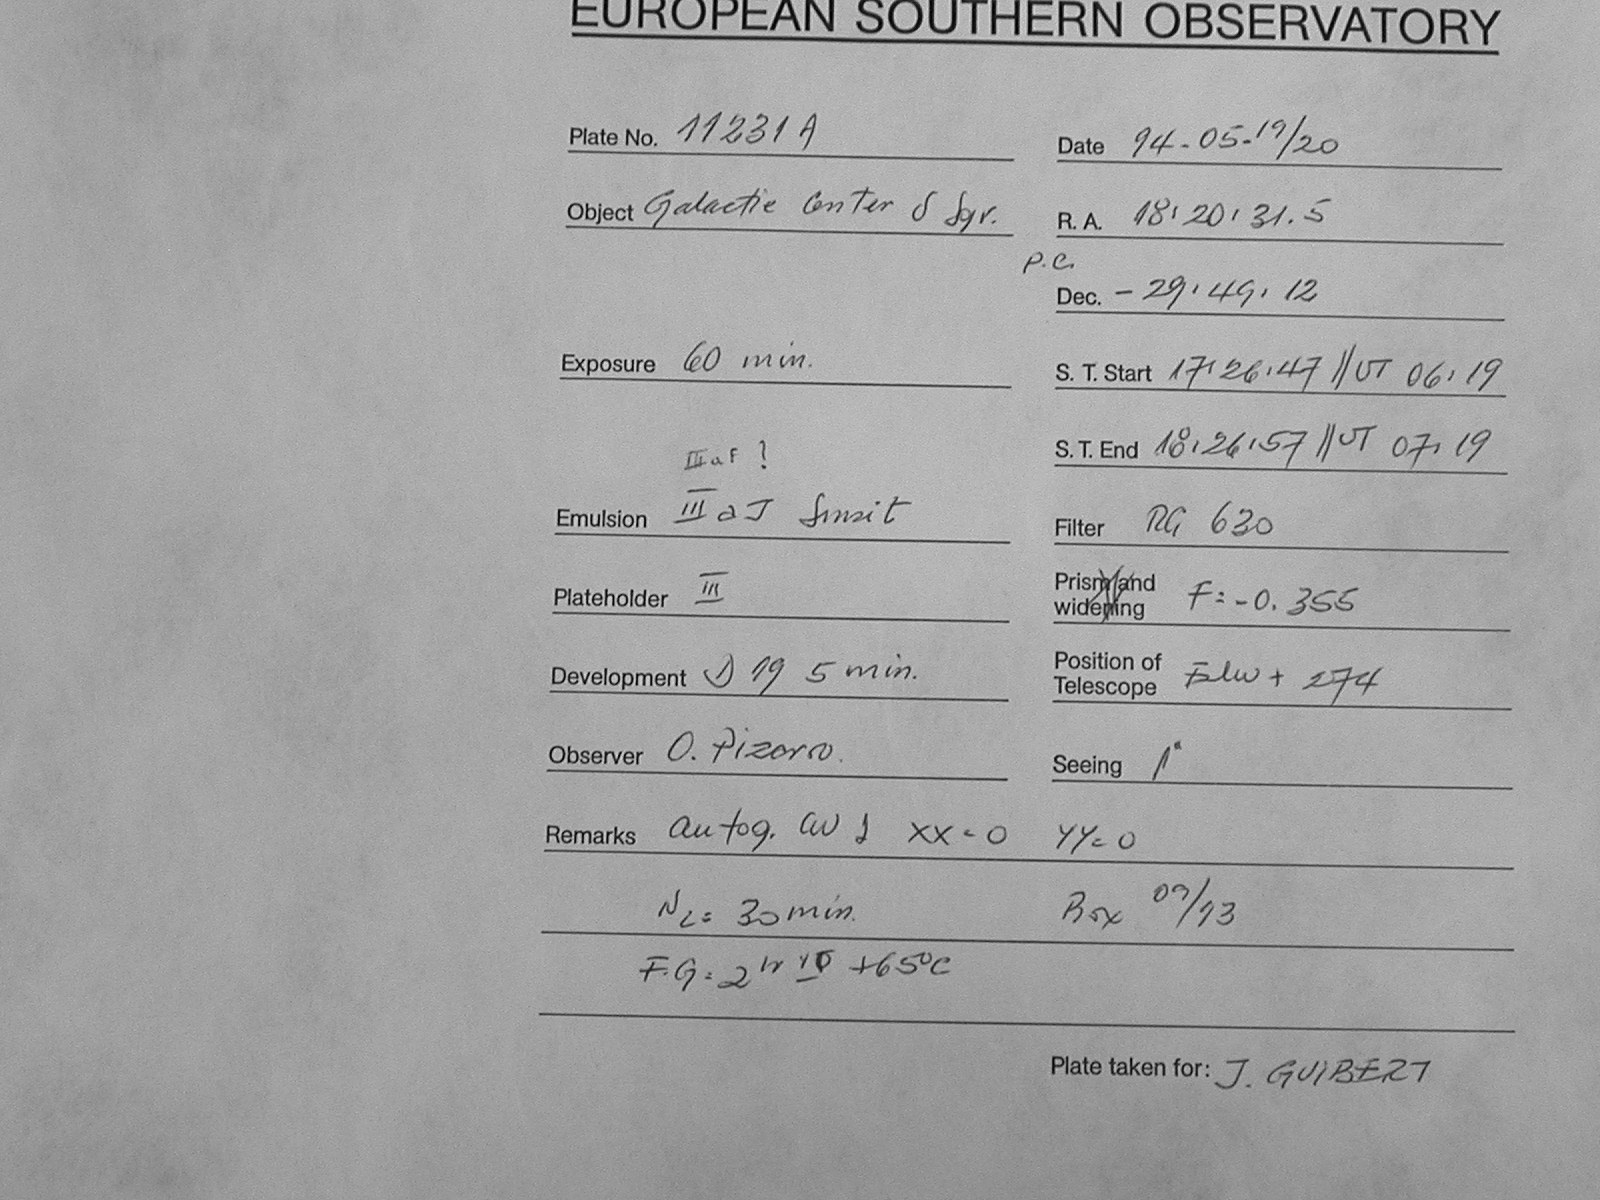 EUROPEAN SOUTHERN OBSERVATORY
Plate No. 11231A
Date 94-05-19/20
Object Galactic Center δ Sgr.
R. A. 18:20:31.5
P.C.
Dec. -29:49:12
Exposure 60 min.
S. T. Start 17:26:47 // UT 06:19
S. T. End 18:26:57 // UT 07:19
IIIaF ?
Emulsion IIIaJ
Filter RG 630
Plateholder III
Prism and widening F=-0.355
Development D 19 5 min.
Position of Telescope + 274
Observer O. Pizarro.
Seeing 1"
Remarks autog. XX=0 YY=0
N2= 30 min. Box 09/93
F.G=2 hr +65°C
Plate taken for: J. GUIBERT